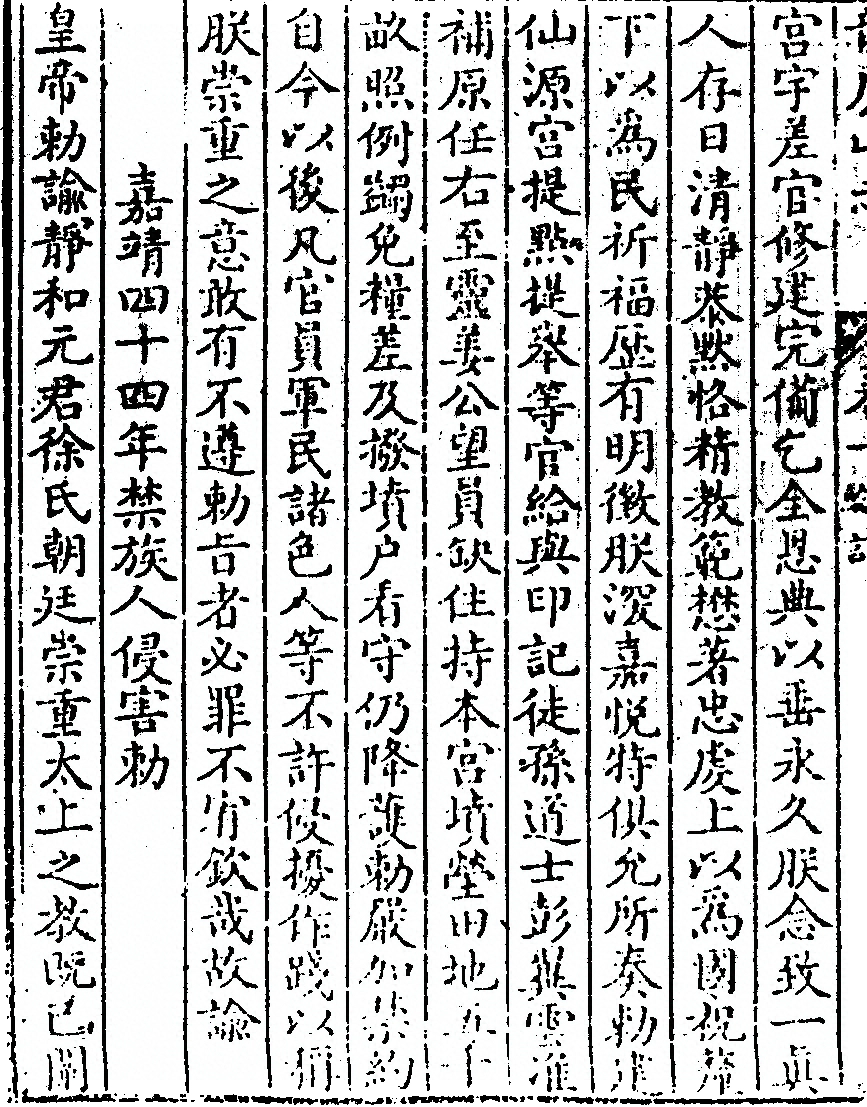 宮宇差官修建完備乞全恩典以垂永久朕念致一真
人存日清靜恭默恪精教範懋著忠虔上以為國祝釐
下以為民祈福歷有明徵朕深嘉悅特俱允所奏勅建
仙源宮提點提舉等官給與印記徒孫道士彭異雲准
補原任右至靈姜公望員缺住持本宮墳塋田地五十
畝照例蠲免糧差及撥墳户看守仍降護勅嚴加禁約
自今以後凡官員軍民諸色人等不許侵擾作踐以稱
朕崇重之意敢有不遵勅㫖者必罪不宥欽哉故諭
嘉靖四十四年禁族人侵害勅
皇帝勅諭靜和元君徐氏朝廷崇重太上之教既已開